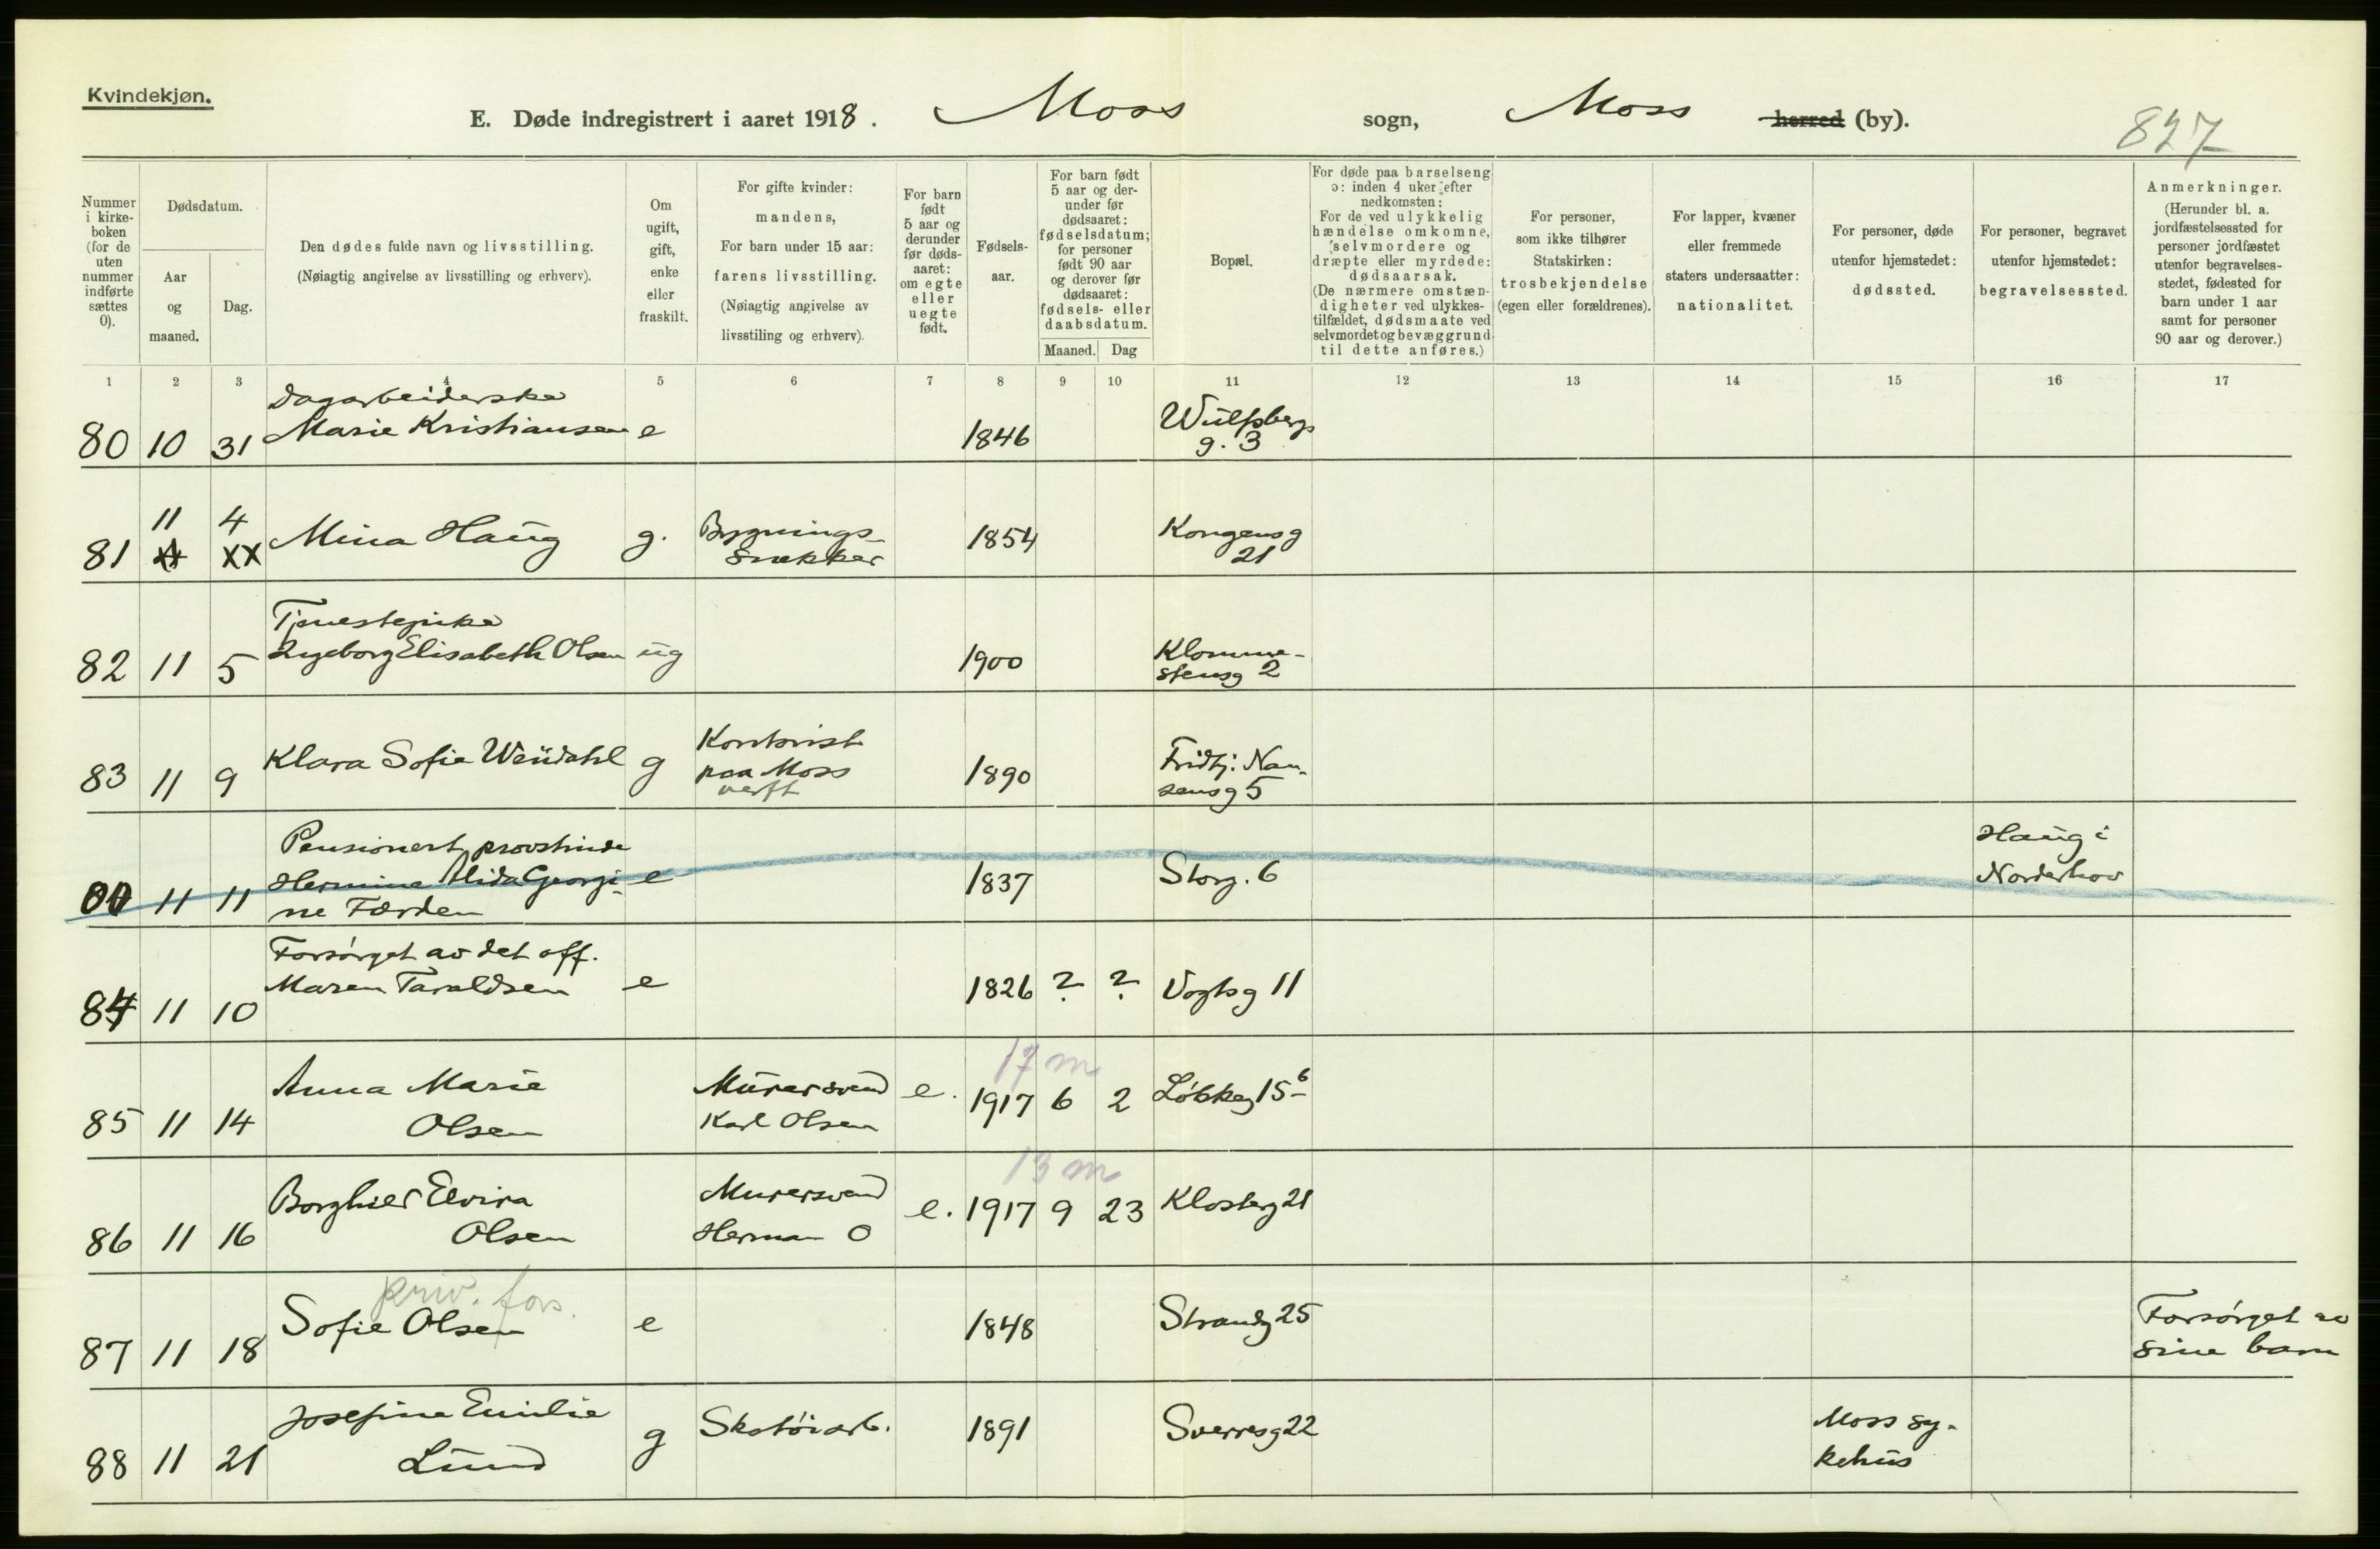 Kvindekjøn.
E. Døde indregistrert i aaret 1918. Moss sogn, Moss herred (by).
827
Nummer i kirkeboken (for de uten nummer indførte sættes 0).
Dødsdatum.
Aar og maaned.
Dag.
Den dødes fulde navn og livsstilling.
(Nøiagtig angivelse av livsstilling og erhverv).
Om ugift, gift, enke eller fraskilt.
For gifte kvinder: mandens,
For barn under 15 aar: farens livsstilling.
(Nøiagtig angivelse av livsstiling og erhverv).
For barn født 5 aar og derunder før dødsaaret: om egte eller uegte født.
Fødselsaar.
For barn født 5 aar og derunder før dødsaaret: fødselsdatum; for personer født 90 aar og derover før dødsaaret: fødsels- eller daabsdatum.
Maaned. Dag
Bopæl.
For døde paa barselseng ɔ: inden 4 uker efter nedkomsten:
For de ved ulykkelig hændelse omkomne, selvmordere og dræpte eller myrdede: dødsaarsak.
(De nærmere omstændigheter ved ulykkestilfældet, dødsmaate ved selvmordet og bevæggrund til dette anføres.)
For personer, som ikke tilhører Statskirken: trosbekjendelse (egen eller forældrenes).
For lapper, kvæner eller fremmede staters undersaatter: nationalitet.
For personer, døde utenfor hjemstedet: dødssted.
For personer, begravet utenfor hjemstedet: begravelsessted.
Anmerkninger.
(Herunder bl. a. jordfæstelsessted for personer jordfæstet utenfor begravelsesstedet, fødested for barn under 1 aar samt for personer 90 aar og derover.)
1 2 3 4 5 6 7 8 9 10 11 12 13 14 15 16 17
Dagarbeiderske
80 10 31 Marie Kristiansen e 1846 Wulfsbergs g. 3
11 4
81 XX Mina Haug g. Bygningssnekker 1854 Kongensg 21
Tjenestepike
82 11 5 Ingeborg Elisabeth Olsen ug 1900 Klommestensg 2
83 11 9 Klara Sofie Wendahl g Kontorist paa Moss verft 1890 Fridtj. Nansensg 5
Pensionert provstinde
00 11 11 Hermine Alida Georgine Færden e 1837 Storg. 6 Haug i Norderhov
Forsørget av det off.
84 11 10 Maren Taraldsen e 1826 ? ? Vogtsg 11
17 m
85 11 14 Anna Marie Olsen Murersvend Karl Olsen e. 1917 6 2 15 6
13 m
86 11 16 Borghild Elvira Olsen Murersvend Herman O e. 1917 9 23 Klosterg 21
priv. fors.
87 11 18 Sofie Olsen e 1848 Strandg 25 Forsørget av sine barn
88 11 21 Josefine Emilie Lund g Skotøiarb. 1891 Sverresg 22 Moss sykehus